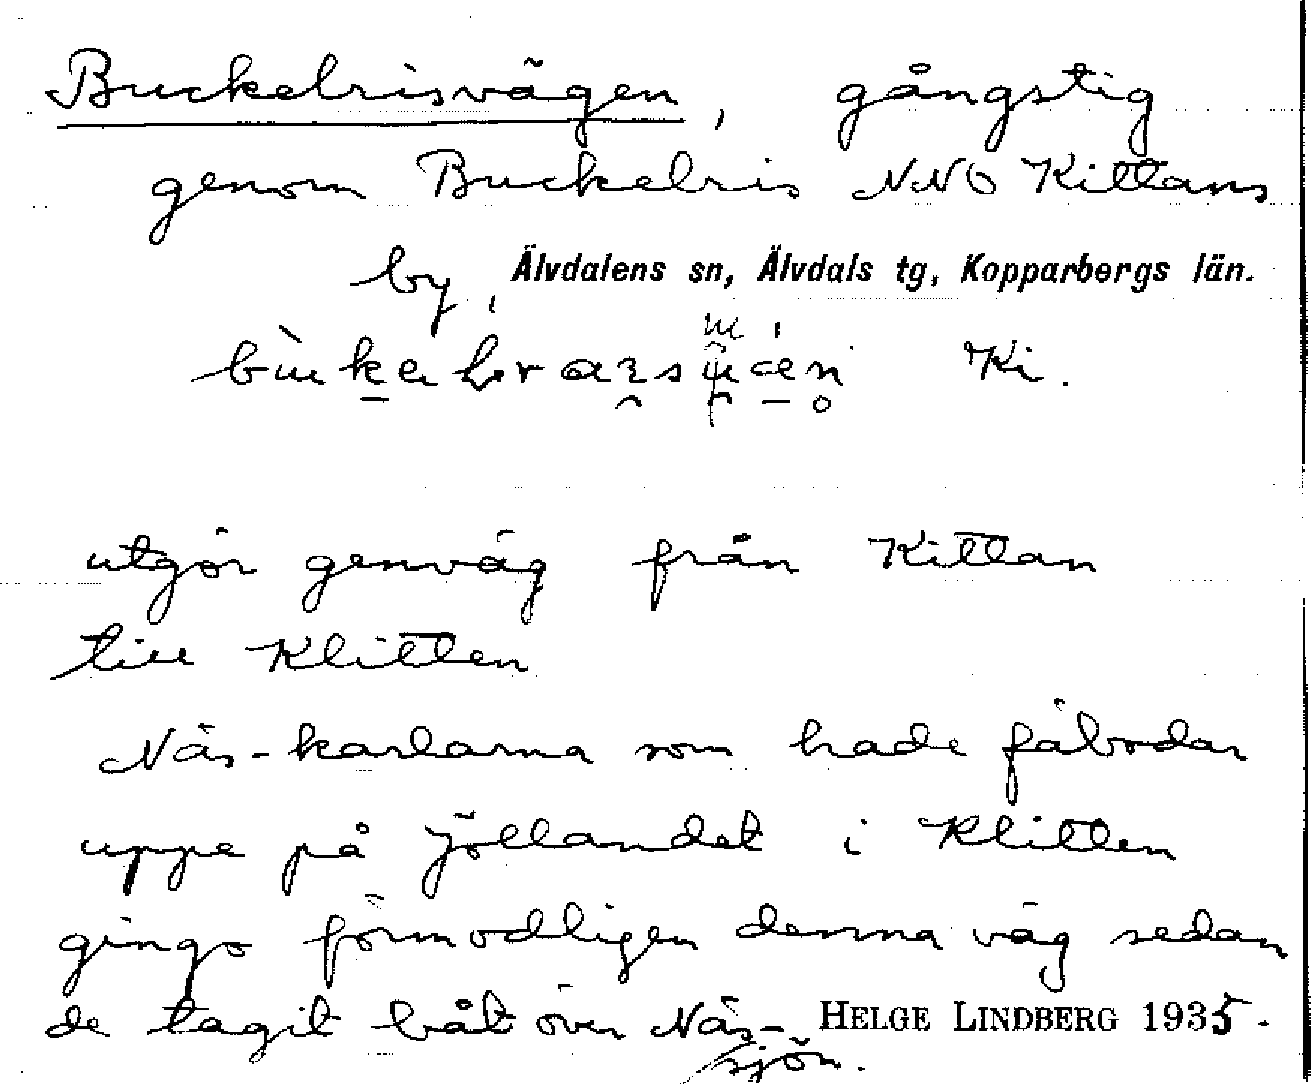 Buckelrisvägen, gångstig
genom Buckelris NNO Kittans
by, Älvdalens sn, Älvdals tg, Kopparbergs län.
Ki.
utgör genväg från Kittan
till Klitten
Näs-karlarna som hade fäbodar
uppe på Jöllandet i Klitten
gingo förmodligen denna väg sedan
de tagit båt över Näs- HELGE LINDBERG 1935.
sjön.